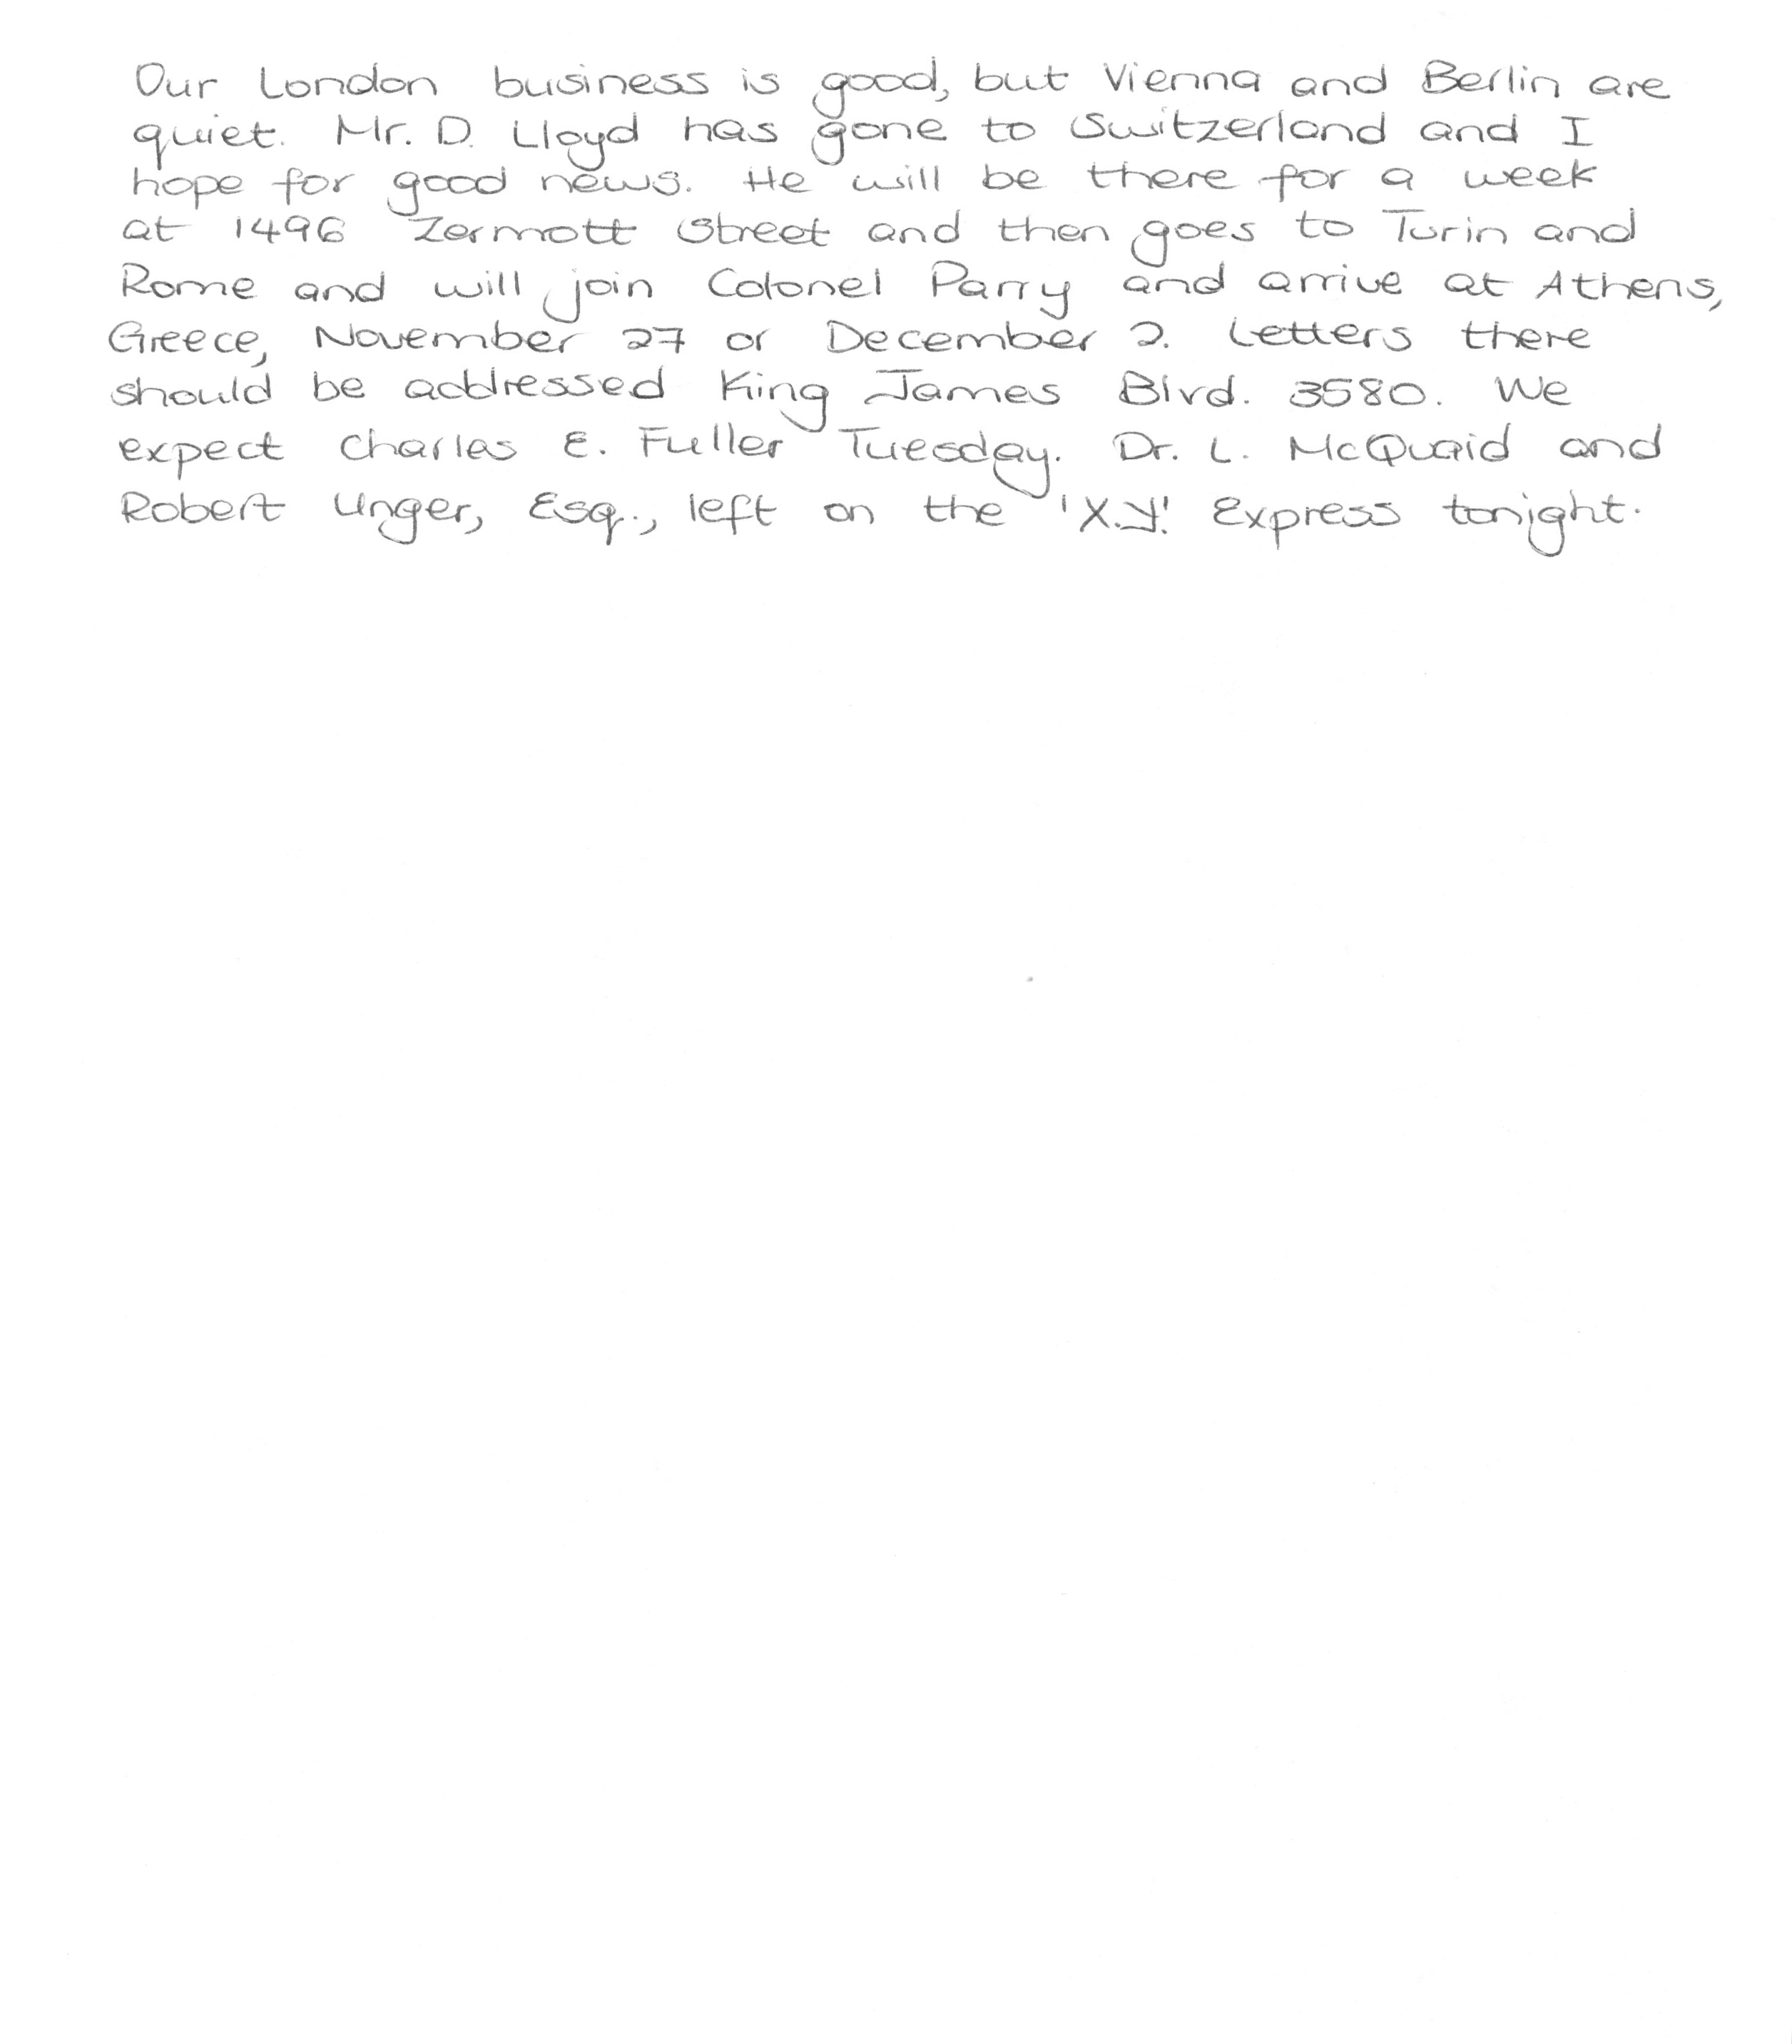 Our London business is good, but Vienna and Berlin are
quiet. Mr. D. Lloyd has gone to Switzerland and I
hope for good news. He will be there for a week
at 1496 Zermott Street and then goes to Turin and
Rome and will join Colonel Parry and arrive at Athens,
Greece, November 27 or December 2. Letters there
should be addressed King James Blvd. 3580. We
expect Charles E. Fuller Tuesday. Dr. L. McQuaid and
Robert Unger, Esq., left on the 'X.Y.' Express tonight.